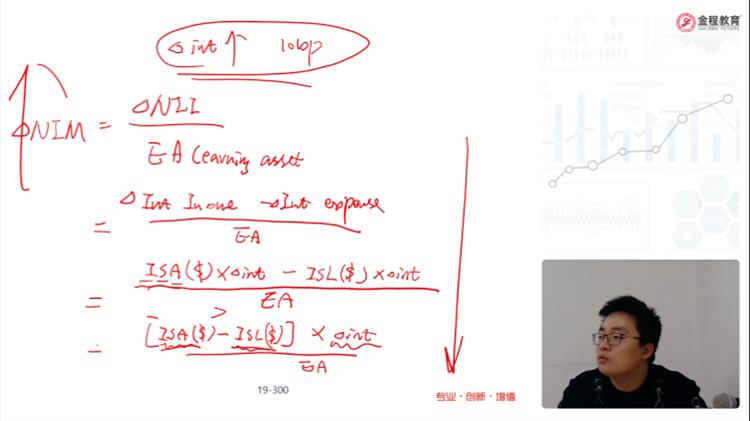 金程教育
GOLDEN FUTURE
Δint↑ 10bp
ΔNIM = ΔNII
EA (earning asset
= ΔInt Inome - ΔInt expense
EA
= ISA($)×Δint - ISL($)×Δint
EA
>
= [ISA($)-ISL($)] × Δint
EA
19-300
专业·创新·增值